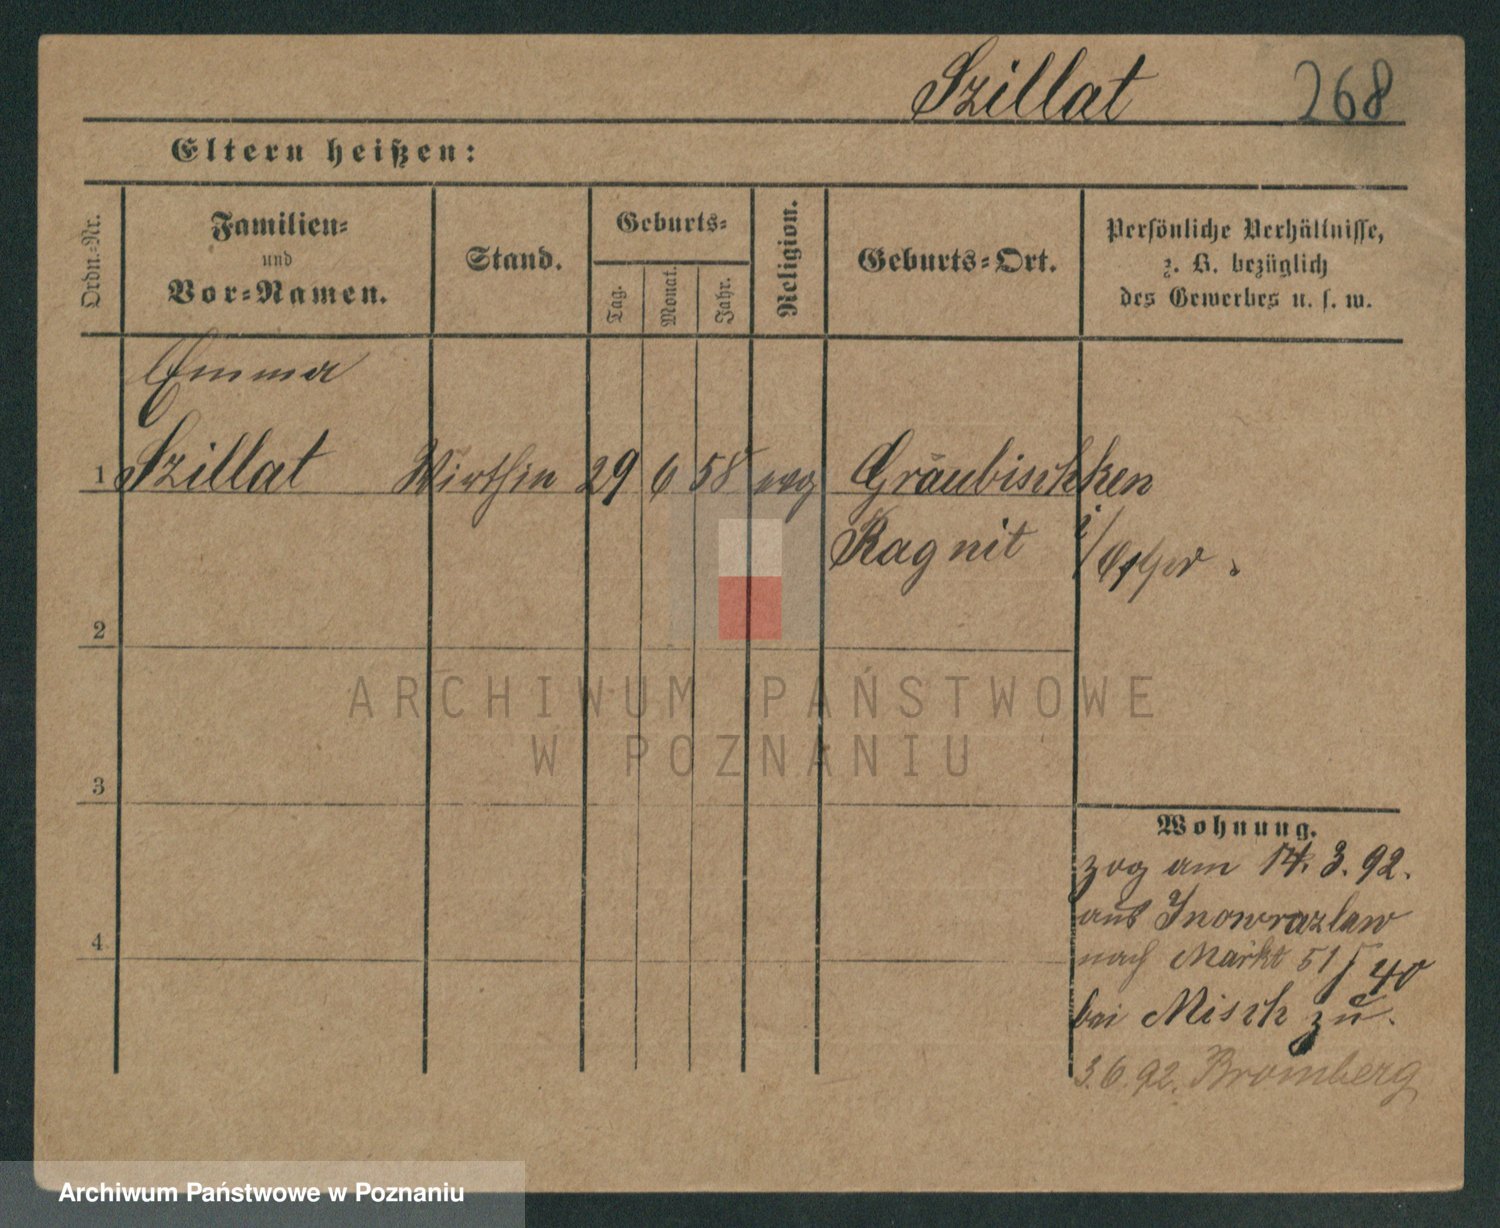 Szillat 268
Eltern heißen:
Ordn.-Nr.
Familien-
und
Vor-Namen.
Stand.
Geburts-
Tag.
Monat.
Jahr.
Religion.
Geburts-Ort.
Persönliche Verhältnisse,
z. B. bezüglich
des Gewerbes u. s. w.
Emma
1 Szillat Wirthin 29 6 58 evg Gräubischken
Ragnit i/
2
ARCHIWUM PAŃSTWOWE
W POZNANIU
3
Wohnung.
zog am 14. 3. 92.
aus Inowrazlaw
4
nach Markt 51/40
bei Misch zu.
3.6.92. Bromberg
Archiwum Państwowe w Poznaniu